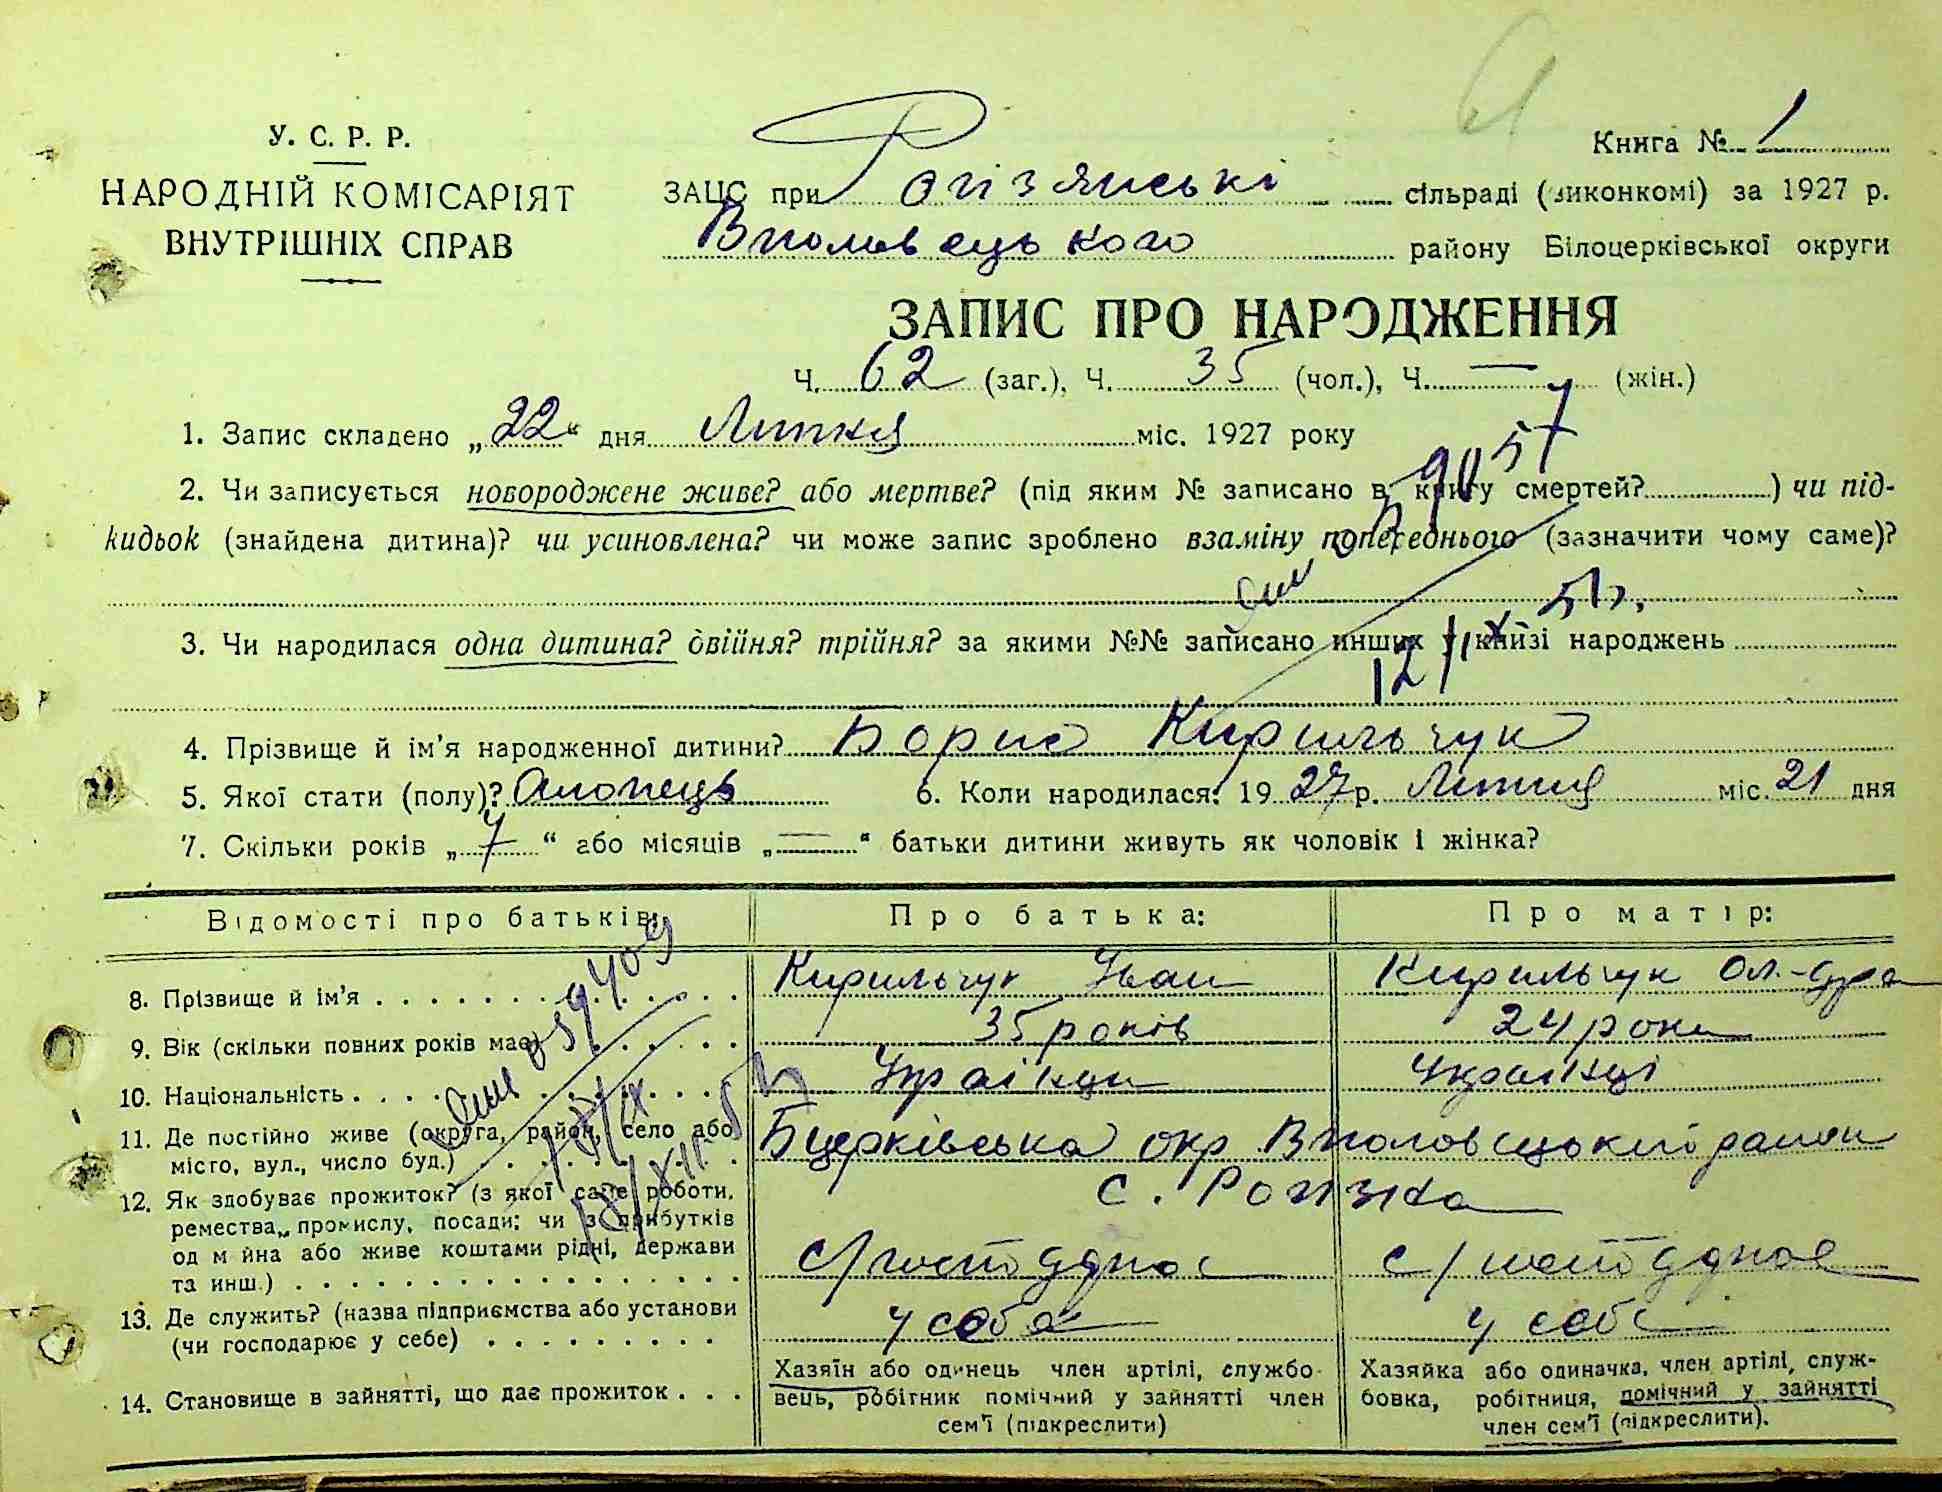 У. С. Р. Р.
НАРОДНІЙ КОМІСАРІЯТ
ВНУТРІШНІХ СПРАВ
Книга № 1
ЗАЦС при Рогізянські сільраді (виконкомі) за 1927 р.
Вполовецького району Білоцерківської округи
ЗАПИС ПРО НАРОДЖЕННЯ
Ч. 62 (заг.), Ч. 35 (чол.), Ч. — (жін.)
1. Запис складено „22“ дня Липня міс. 1927 року
2. Чи записується новороджене живе? або мертве? (під яким № записано в книгу смертей? ) чи під-
кидьок (знайдена дитина)? чи усиновлена? чи може запис зроблено взаміну попереднього (зазначити чому саме)?
3. Чи народилася одна дитина? двійня? трійня? за якими №№ записано инших у книзі народжень
4. Прізвище й ім'я народженної дитини? Борис Кирильчук
5. Якої стати (полу)? Хлопець 6. Коли народилася: 1927 р. Липня міс. 21 дня
7. Скільки років „7“ або місяців „—“ батьки дитини живуть як чоловік і жінка?
Відомості про батьків: Про батька: Про матір:
8. Прізвище й ім'я Кирильчук Іван Кирильчук Ол-дра
9. Вік (скільки повних років має) 35 років 24 роки
10. Національність Українци Українці
11. Де постійно живе (округа, район, село або Бцерківська окр Вполовецький район
місто, вул., число буд.) с. Рогізка
12. Як здобуває прожиток? (з якої саме роботи,
ремества, промислу, посади; чи з прибутків
од майна або живе коштами рідні, держави
та инш.)
13. Де служить? (назва підприємства або установи
(чи господарює у себе) у себе у себе
14. Становище в зайнятті, що дає прожиток
Хазяїн або одинець член артілі, службо-
вець, робітник помічний у зайнятті член
сем'ї (підкреслити)
Хазяйка або одиначка, член артілі, служ-
бовка, робітниця, помічний у зайнятті
член сем'ї (підкреслити).